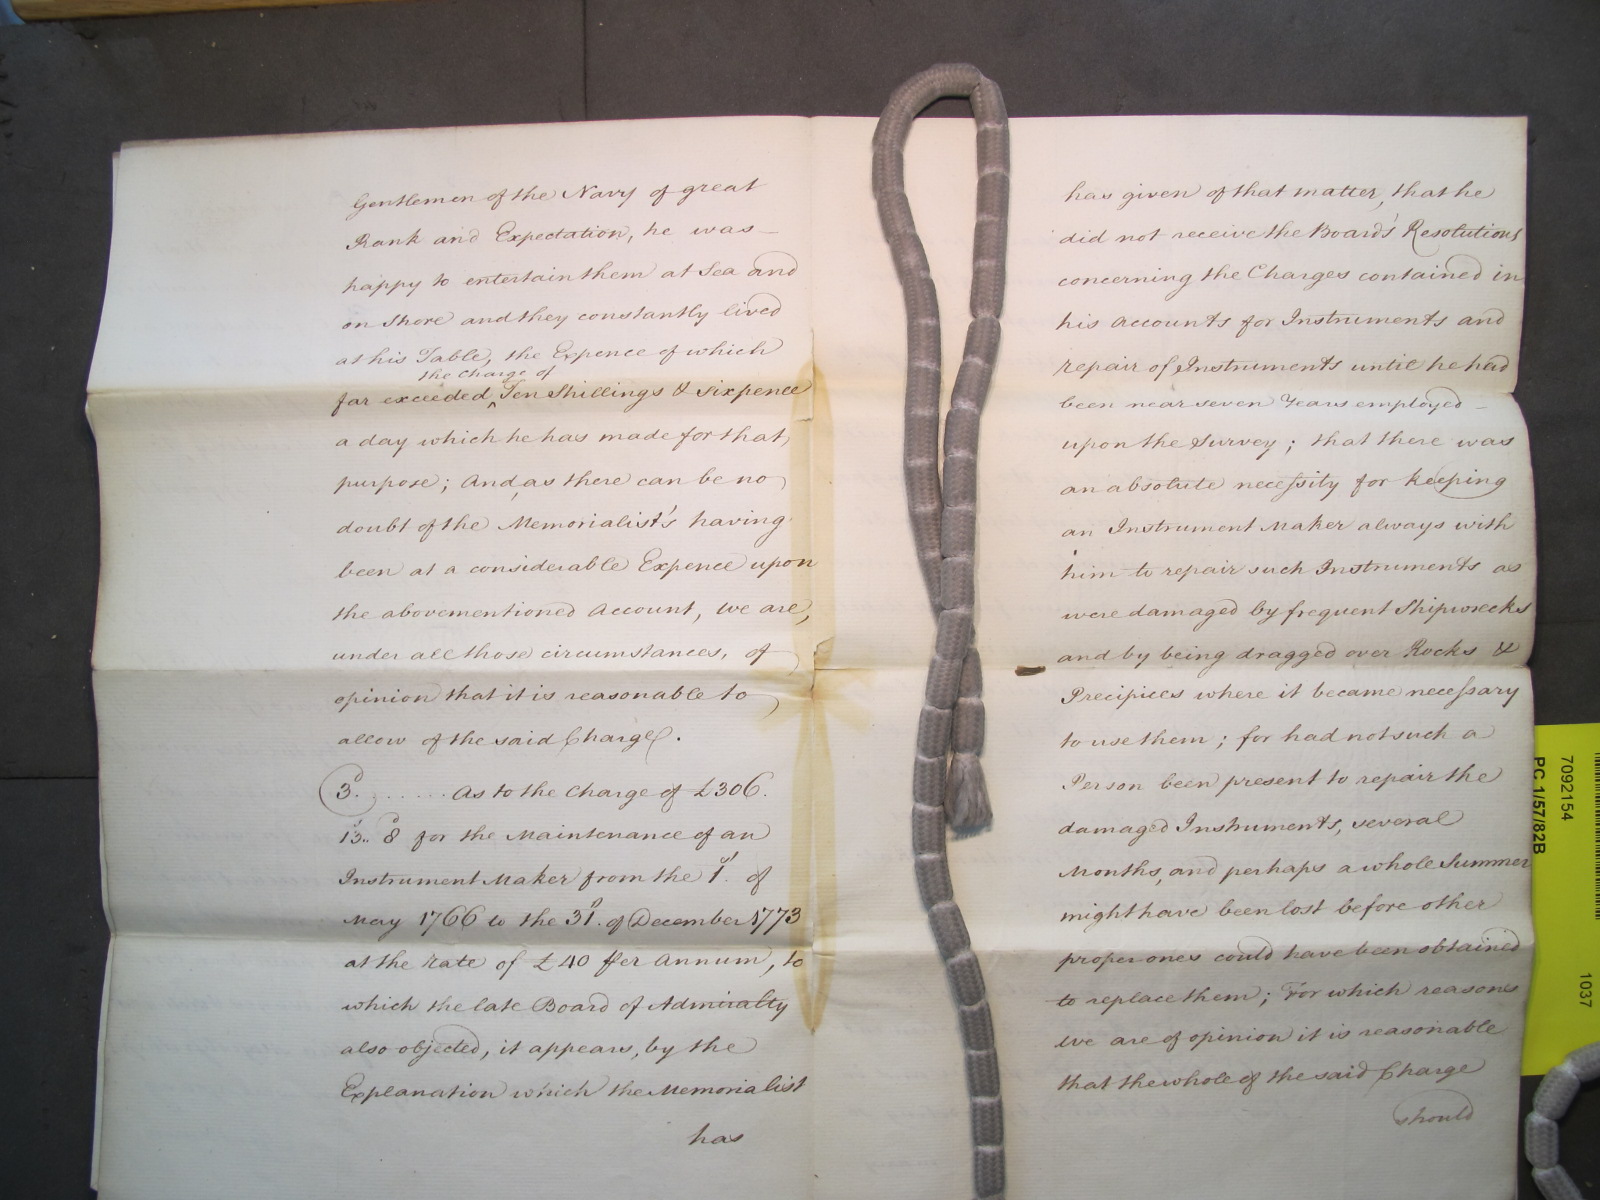 Gentlemen of the Navy of great
Rank and Expectation, he was -
happy to entertain them at Sea and
on Shore and they constantly lived
at his Table, the Expence of which
the Charge of
far exceeded ‸ Ten Shillings & Sixpence
a day which he has made for that
purpose; And, as there can be no
doubt of the Memorialist's having
been at a considerable Expence upon
the abovementioned Account, We are,
under all those circumstances, of
opinion that it is reasonable to
allow of the said Charge.
3d. ....... As to the Charge of £306.
13s.. 8d for the Maintenance of an
Instrument Maker from the 1st. of
May 1766 to the 31st. of December 1773
at the rate of £40 Per Annum, to
which the late Board of Admiralty
also objected, it appears, by the
Explanation which the Memorialist
has
has given of that matter, that he
did not receive the Board's Resolutions
concerning the Charges contained in
his Accounts for Instruments and
repair of Instruments until he had
been near seven Years employed -
upon the Survey; that there was
an absolute necessity for keeping
an Instrument Maker always with
him to repair such Instruments as
were damaged by frequent Shipwrecks
and by being dragged over Rocks &
Precipices where it became necessary
to use them; for had not such a
Person been present to repair the
damaged Instruments, several
Months, and perhaps a whole Summer
might have been lost before other
proper ones could have been obtained
to replace them; For which reasons
We are of opinion it is reasonable
that the whole of the said Charge
should
7092154
PC 1/57/82B
1037